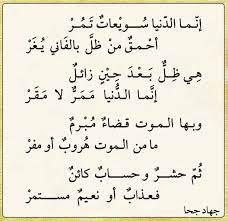 إنّما الدّنيا سُويْعاتٌ تَمُرْ
أحْمقٌ منْ ظلَّ بالفَاني يُغَرْ
هِي ظِلٌّ بَعْدَ حِيْنٍ زائلٌ
إنَّما الدُّنيا مَمَرٌّ لا مَقَرْ
وبها الموت قضاءٌ مُبْرمٌ
ما من الموت هُروبٌ أو مفرْ
ثُمّ حشرٌ وحسابٌ كائنٌ
فعذابٌ أو نعيمٌ مستمرْ
جهاد جحا